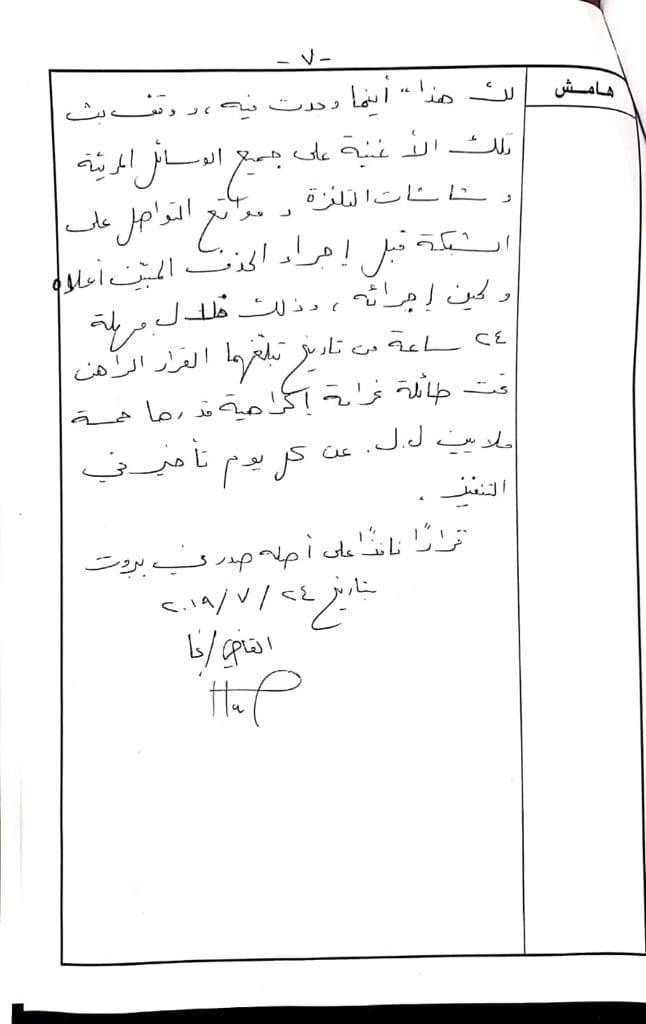 - ٧ -
هامش
لك هذا" أينما وجدت فيه، ووقف بث
تلك الأغنية على جميع الوسائل المرئية
وشاشات التلفزة ومواقع التواصل على
الشبكة قبل إجراء الحذف المبيّن أعلاه
ولحين إجرائه، وذلك خلال مهلة
٢٤ ساعة من تاريخ تبلّغها القرار الراهن
تحت طائلة غرامة إكراهية قدرها خمسة
ملايين ل.ل. عن كل يوم تأخير في
التنفيذ.
قرارًا نافذًا على أصله صدر في بيروت
بتاريخ ٢٤/٧/٢٠١٩
القاضي/